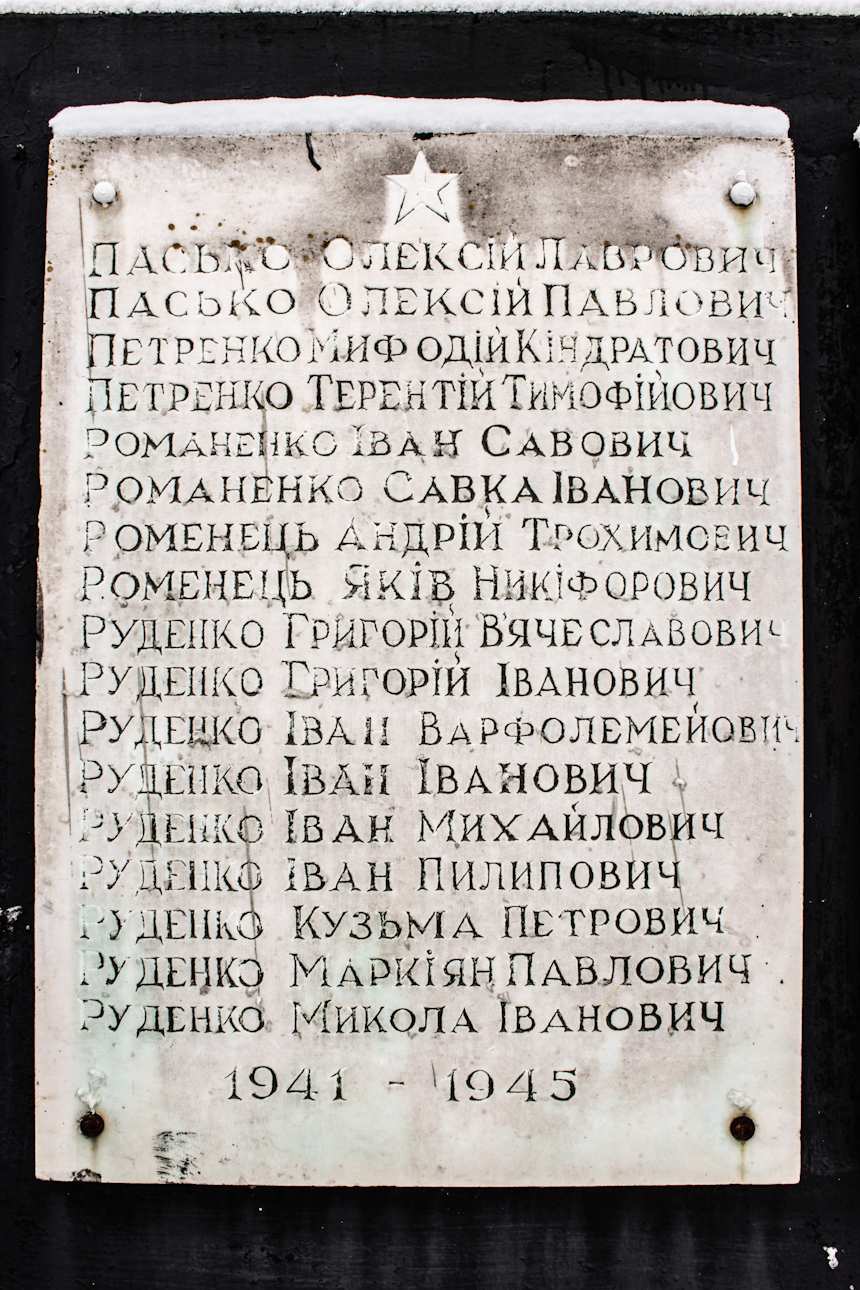 Пасько Олексій Лаврович
Пасько Олексій Павлович
Петренко Мифодій Кіндратович
Петренко Терентій Тимофійович
Романенко Іван Савович
Романенко Савка Іванович
Роменець Андрій Трохимович
Роменець Яків Никіфорович
Руденко Григорій В'ячеславович
Руденко Григорій Іванович
Руденко Іван Варфолемейович
Руденко Іван Іванович
Руденко Іван Михайлович
Руденко Іван Пилипович
Руденко Кузьма Петрович
Руденко Маркіян Павлович
Руденко Микола Іванович
1941 - 1945